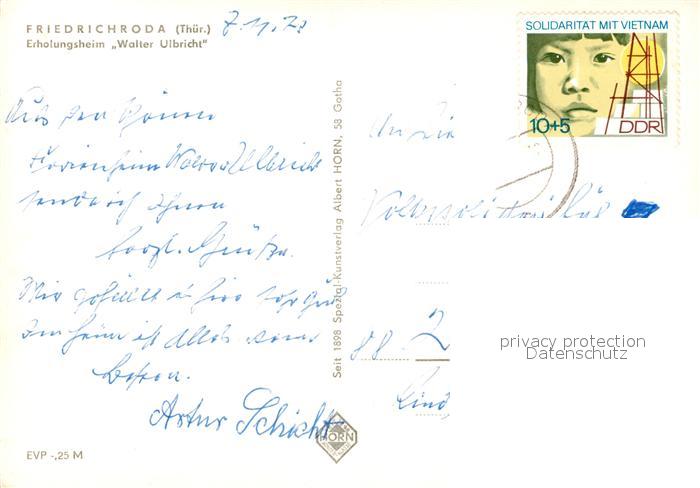 FRIEDRICHRODA (Thür.)
Erholungsheim „Walter Ulbricht"
SOLIDARITÄT MIT VIETNAM
10+5
DDR
Aus dem schönen
Ferienheim Walter Ulbricht
sende ich Ihnen
herzl. Grüße.
Mir gefällt es hier sehr gut
Im Heim ist alles vom
Besten.
Artur Schicht
An die
Volkssolidarität
88
Seit 1898 Spezial-Kunstverlag Albert HORN, 58 Gotha
HORN
privacy protection
Datenschutz
EVP -,25 M